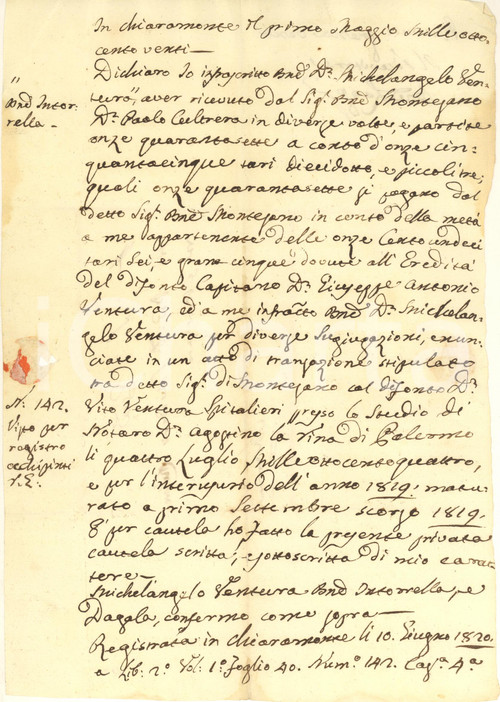 In Chiaramonte Il primo Maggio Mille otto
cento venti —
Dichiaro Io infrascritto Bne Dn Michelangelo Ven
tura, aver ricevuto dal Sigr Bne Montejano
Dn Paolo Cultrera in diverze volte, e partite
onze quarantasette a conto d'onze cin
quantacinque tari dieciotto, e piccoli tre,
quali onze quarantasette si pagano dal
detto Sigr Bne Montejano in conto della metà
a me appartenente delle onze Cento undeci
tari Sei, e grana cinque dovute all'Eredità
del difonto Capitano Dn Giuseppe Antonio
Ventura, ed a me infratto Bne Dn Michelan
gelo Ventura per diverze Sugiugazioni, enun
ciate in un atto di tranzazione stipulato
tra detto Sigr di Montejano col difonto Dn
Vito Ventura Spitalieri presso lo Studio di
Notaro Dn Agostino la Vina di Palermo
li quattro Luglio Mille ottocento quattro,
e per l'interusurio dell'anno 1819. matu
rato a primo Settembre scorzo 1819.
E per cautela ho fatto la presente privata
cautela scritta, e sottoscritta di mio carat
tere —
Michelangelo Ventura Bne Intorrella, e
Dagala, confermo come sopra —
Registrata in Chiaramonte li 10. Giugno 1820.
a Lib: 2° Vol: 1° foglio 40. Num° 142. Cas° 4a
"
Bne Intor
rella —
N. 142.
Visto per
registro
Occhipinti